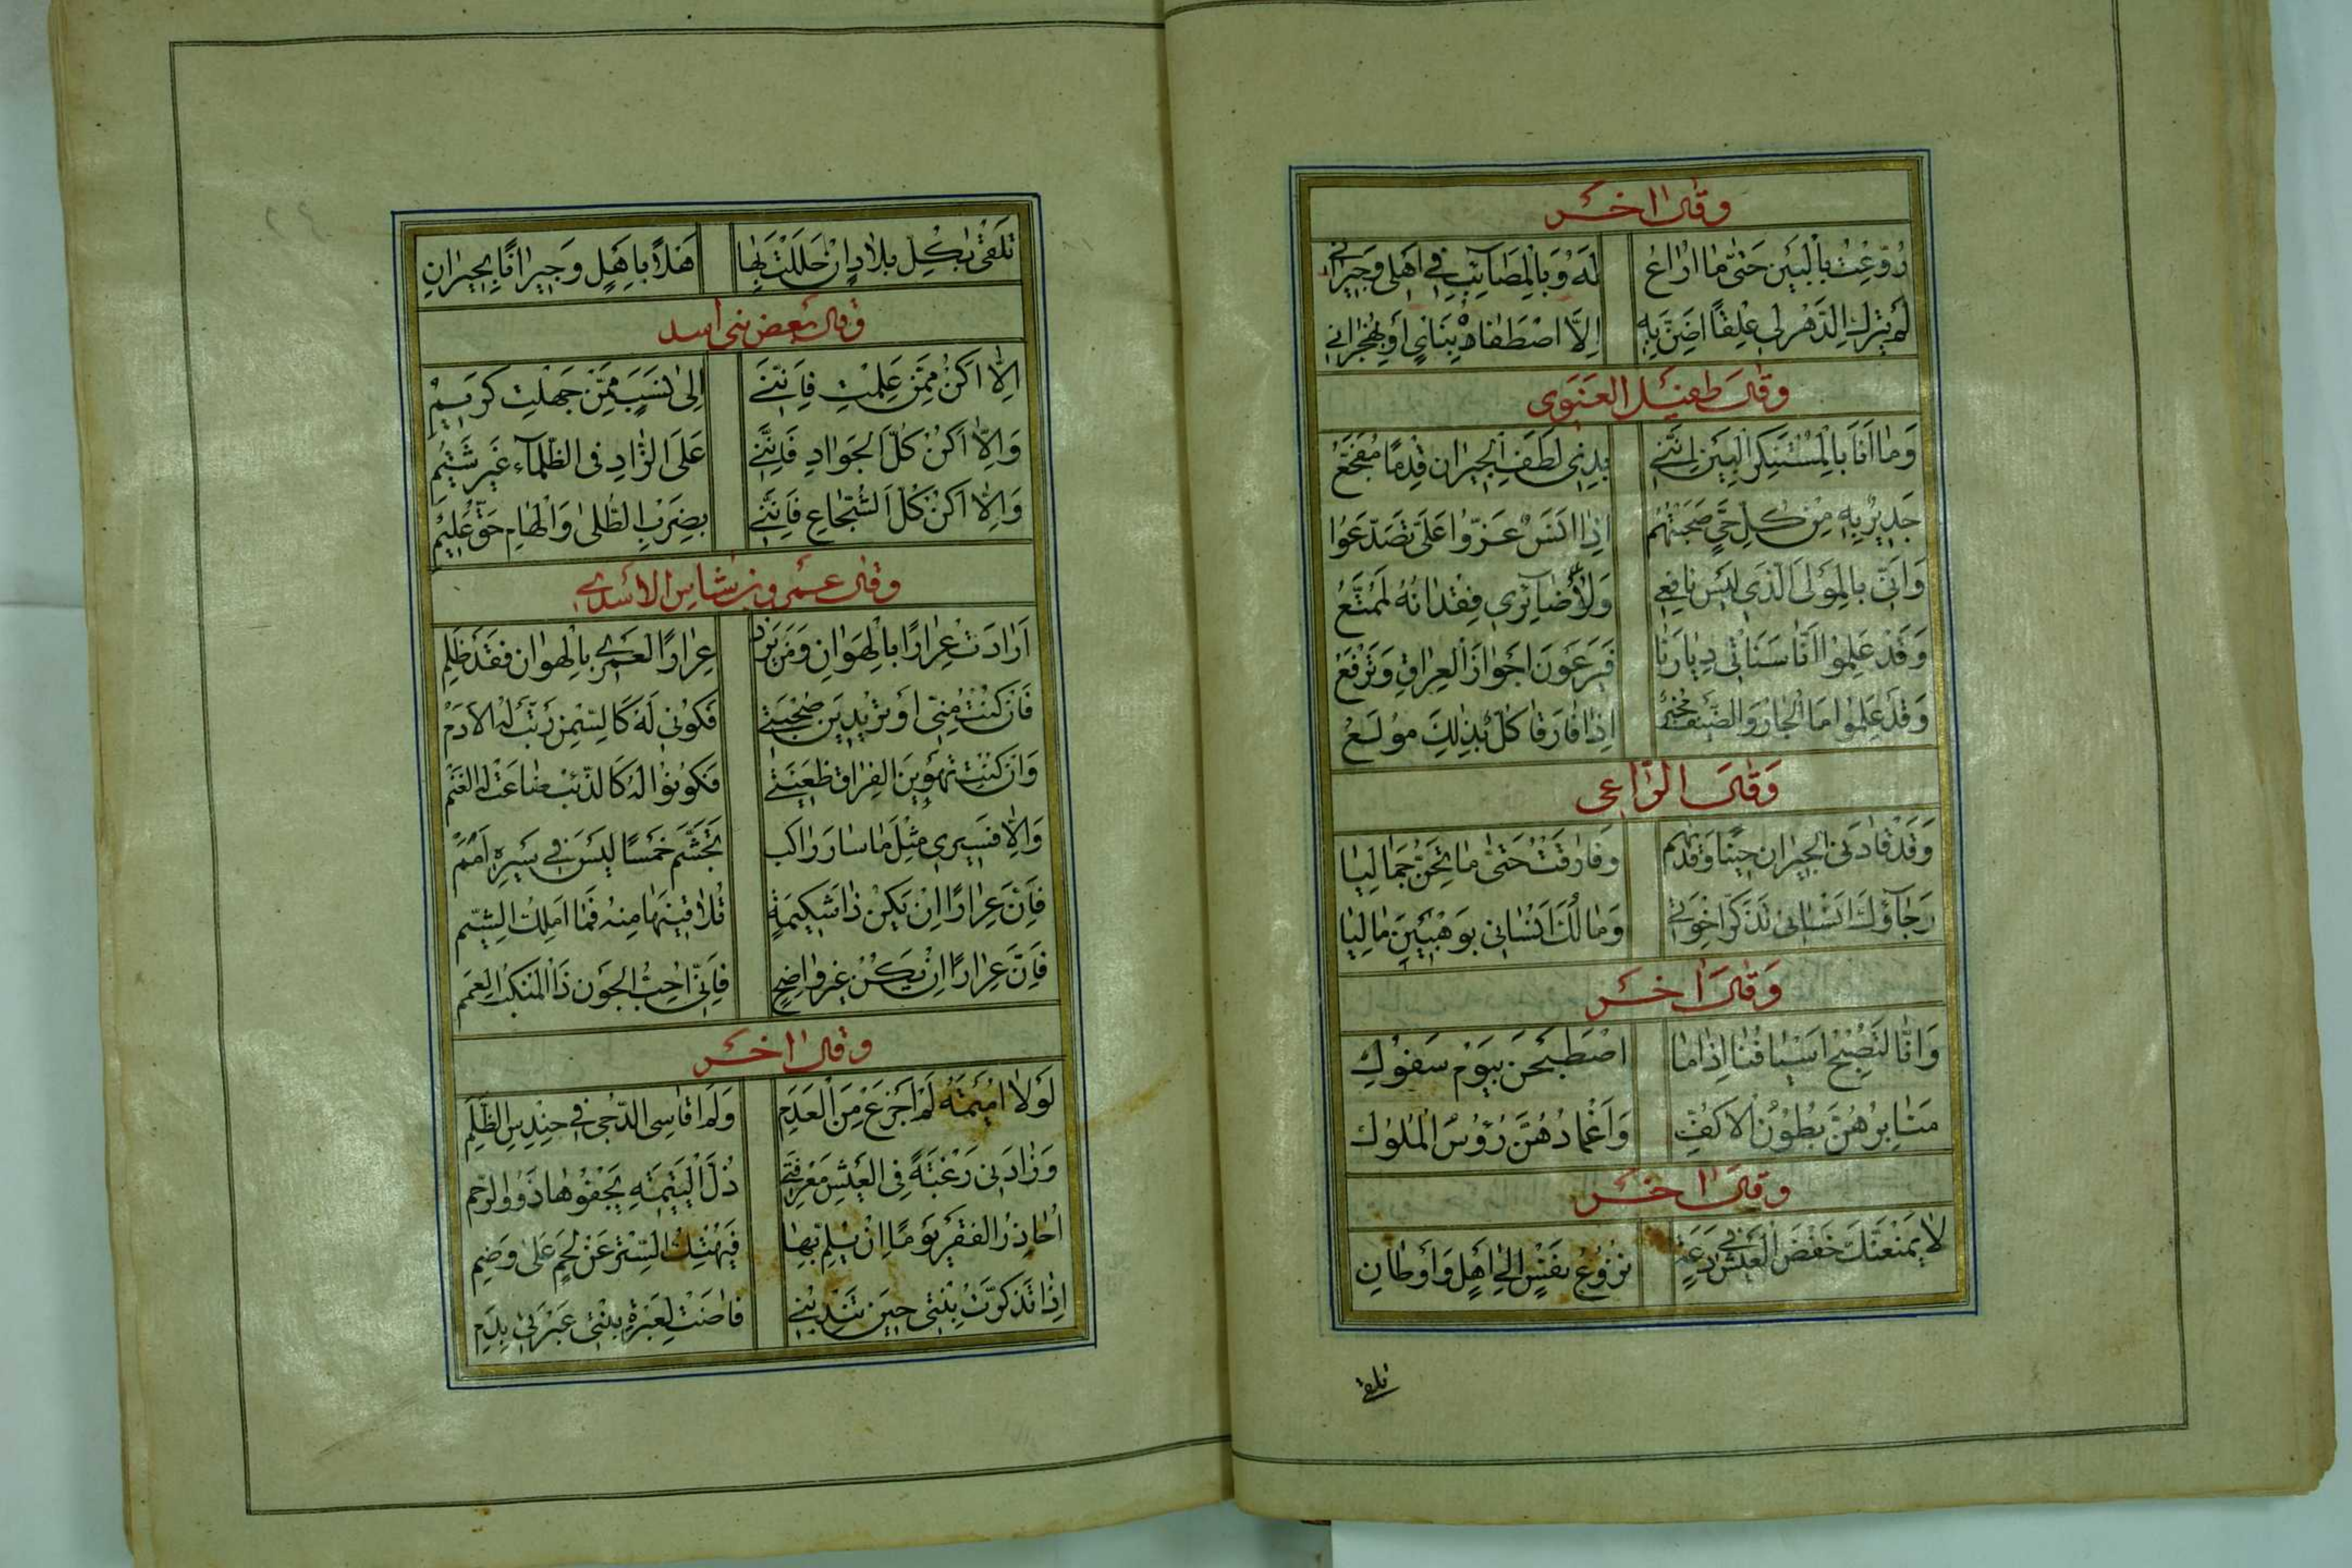 وقال اخر
رُوِّعْتُ بِالْبَيْنِ حَتّٰى مَا اُرَاعُ لَهُ وَبِالْمَصَآئِبِ فِي اَهْلِى وَجِيرَانِي
لَمْ يَتْرُكِ الدَّهْرُ لِى عِلْقًا اَضِنُّ بِهِ اِلَّا اصْطَفَاهُ بِنَايٍ اَوْ بِهِجْرَانِي
وقال طفيل الغنوى
وَمَا اَنَا بِالْمُسْتَنْكِرِ الْبَيْنَ اِنَّنِي بِذِى لَطَفِ الْجِيرَانِ قِدْمًا مُفَجَّعُ
جَدِيرٌ بِهِ مِنْ كُلِّ حَيٍّ صَحِبْتُهُمْ اِذَا اَنَسٌ عَزُّوا عَلَيَّ تَصَدَّعُوا
وَاِنِّى بِالْمَوْلَى الَّذِى لَيْسَ نَافِعِى وَلَا ضَآئِرِى فِقْدَانُهُ لَمُمَتَّعُ
وَقَدْ عَلِمُوا اَنَّا سَنَاْتِى دِيَارَنَا فَيَرْعَوْنَ اَجْوَازَ الْعِرَاقِ وَنَرْفَعُ
وَقَدْ عَلِمُوا اَمَا الْجَارُ وَالضَّيْفُ اِذَا فَارَقَا كُلٌّ بِذٰلِكَ مُولَعُ
وَقَالَ الرَّاعِى
وَقَدْ قَادَنِى الْجِيرَانُ حِينًا وَقُدْتُهُمْ وَفَارَقْتُ حَتّٰى مَا تَحِنُّ جِمَالِيَا
رَجَآؤُكَ اَنْسَانِى تَذَكُّرَ اِخْوَتِى وَمَالُكَ اَنْسَانِى بِوَهْبَيْنِ مَالِيَا
وَقَالَ اخر
وَاِنَّا لَتُصْبِحُ اَسْيَافُنَا اِذَا مَا اصْطَبَحْنَ بِيَوْمٍ سَفُوكِ
مَنَابِرُهُنَّ بُطُوْنُ الْاَكُفِّ وَاَغْمَادُهُنَّ رُؤُسُ الْمُلُوكِ
وقال اخر
لَا يَمْنَعَنَّكَ خَفْضَ الْعَيْشِ فِي دَعَةٍ نُزُوْعُ نَفْسٍ اِلٰى اَهْلٍ وَاَوْطَانِ
تلقى
تَلْقٰى بِكُلِّ بِلَادٍ اِنْ حَلَلْتَ بِهَا اَهْلًا بِاَهْلٍ وَجِيرَانًا بِجِيرَانِ
وقال بعض بنى اسد
اِلَّا اَكُنْ مِمَّنْ عَلِمْتِ فَاِنَّنِي اِلٰى نَسَبٍ مِمَّنْ جَهِلْتِ كَرِيمُ
وَاِلَّا اَكُنْ كُلَّ الْجَوَادِ فَاِنَّنِي عَلَى الزَّادِ فِى الظَّلْمَآءِ غَيْرُ شَتِيمُ
وَاِلَّا اَكُنْ كُلَّ الشُّجَاعِ فَاِنَّنِي بِضَرْبِ الطُّلٰى وَالْهَامِ حَقُّ عَلِيمُ
وقال عمرو بن شاس الاسدى
اَرَادَتْ عِرَارًا بِالْهَوَانِ وَمَنْ يُرِدْ عِرَارًا لَعَمْرِى بِالْهَوَانِ فَقَدْ ظَلَم
فَاِنْ كُنْتِ مِنِّى اَوْ تُرِيْدِيْنَ صُحْبَتِى فَكُوْنِى لَهُ كَالسَّمْنِ رُبَّتْ لَهُ الْاَدَمْ
وَاِنْ كُنْتِ تَهْوِيْنَ الْفِرَاقَ ظَعِيْنَتِى فَكُوْنُوا لَهُ كَالذِّئْبِ ضَاعَتْ لَهُ الْغَنَمْ
وَاِلَّا فَسِيرِى مِثْلَ مَا سَارَ رَاكِبٌ تَجَشَّمَ خَمْسًا لَيْسَ فِى سَيْرِهِ اَمَمْ
فَاِنَّ عِرَارًا اِنْ يَكُنْ ذَا شَكِيْمَةٍ تُلَاقِيْنَهَا مِنْهُ فَمَا اَمْلِكُ الشِّيَم
فَاِنَّ عِرَارًا اِنْ يَكُنْ غَيْرَ وَاضِحٍ فَاِنِّى اُحِبُّ الْجَوْنَ ذَا الْمَنْكِبِ الْعَمَم
وقال اخر
لَوْلَا اُمَيْمَةُ لَمْ اَجْزَعْ مِنَ الْعَدَمِ وَلَمْ اُقَاسِى الدُّجٰى فِى حِنْدِسِ الظُّلَمِ
وَزَادَنِى رَغْبَةً فِى الْعَيْشِ مَعْرِفَتِى ذُلَّ الْيَتِيْمَةِ يَجْفُوْهَا ذَوُو الرَّحِمِ
اُحَاذِرُ الْفَقْرَ يَوْمًا اَنْ يُلِمَّ بِهَا فَيَهْتِكُ السِّتْرَ عَنْ لَحْمٍ عَلٰى وَضَمِ
اِذَا تَذَكَّرْتُ بِنْتِى حِيْنَ تَنْدُبُنِى فَاضَتْ لِعَبْرَةِ بِنْتِى عَبْرَتِى بِدَمِ